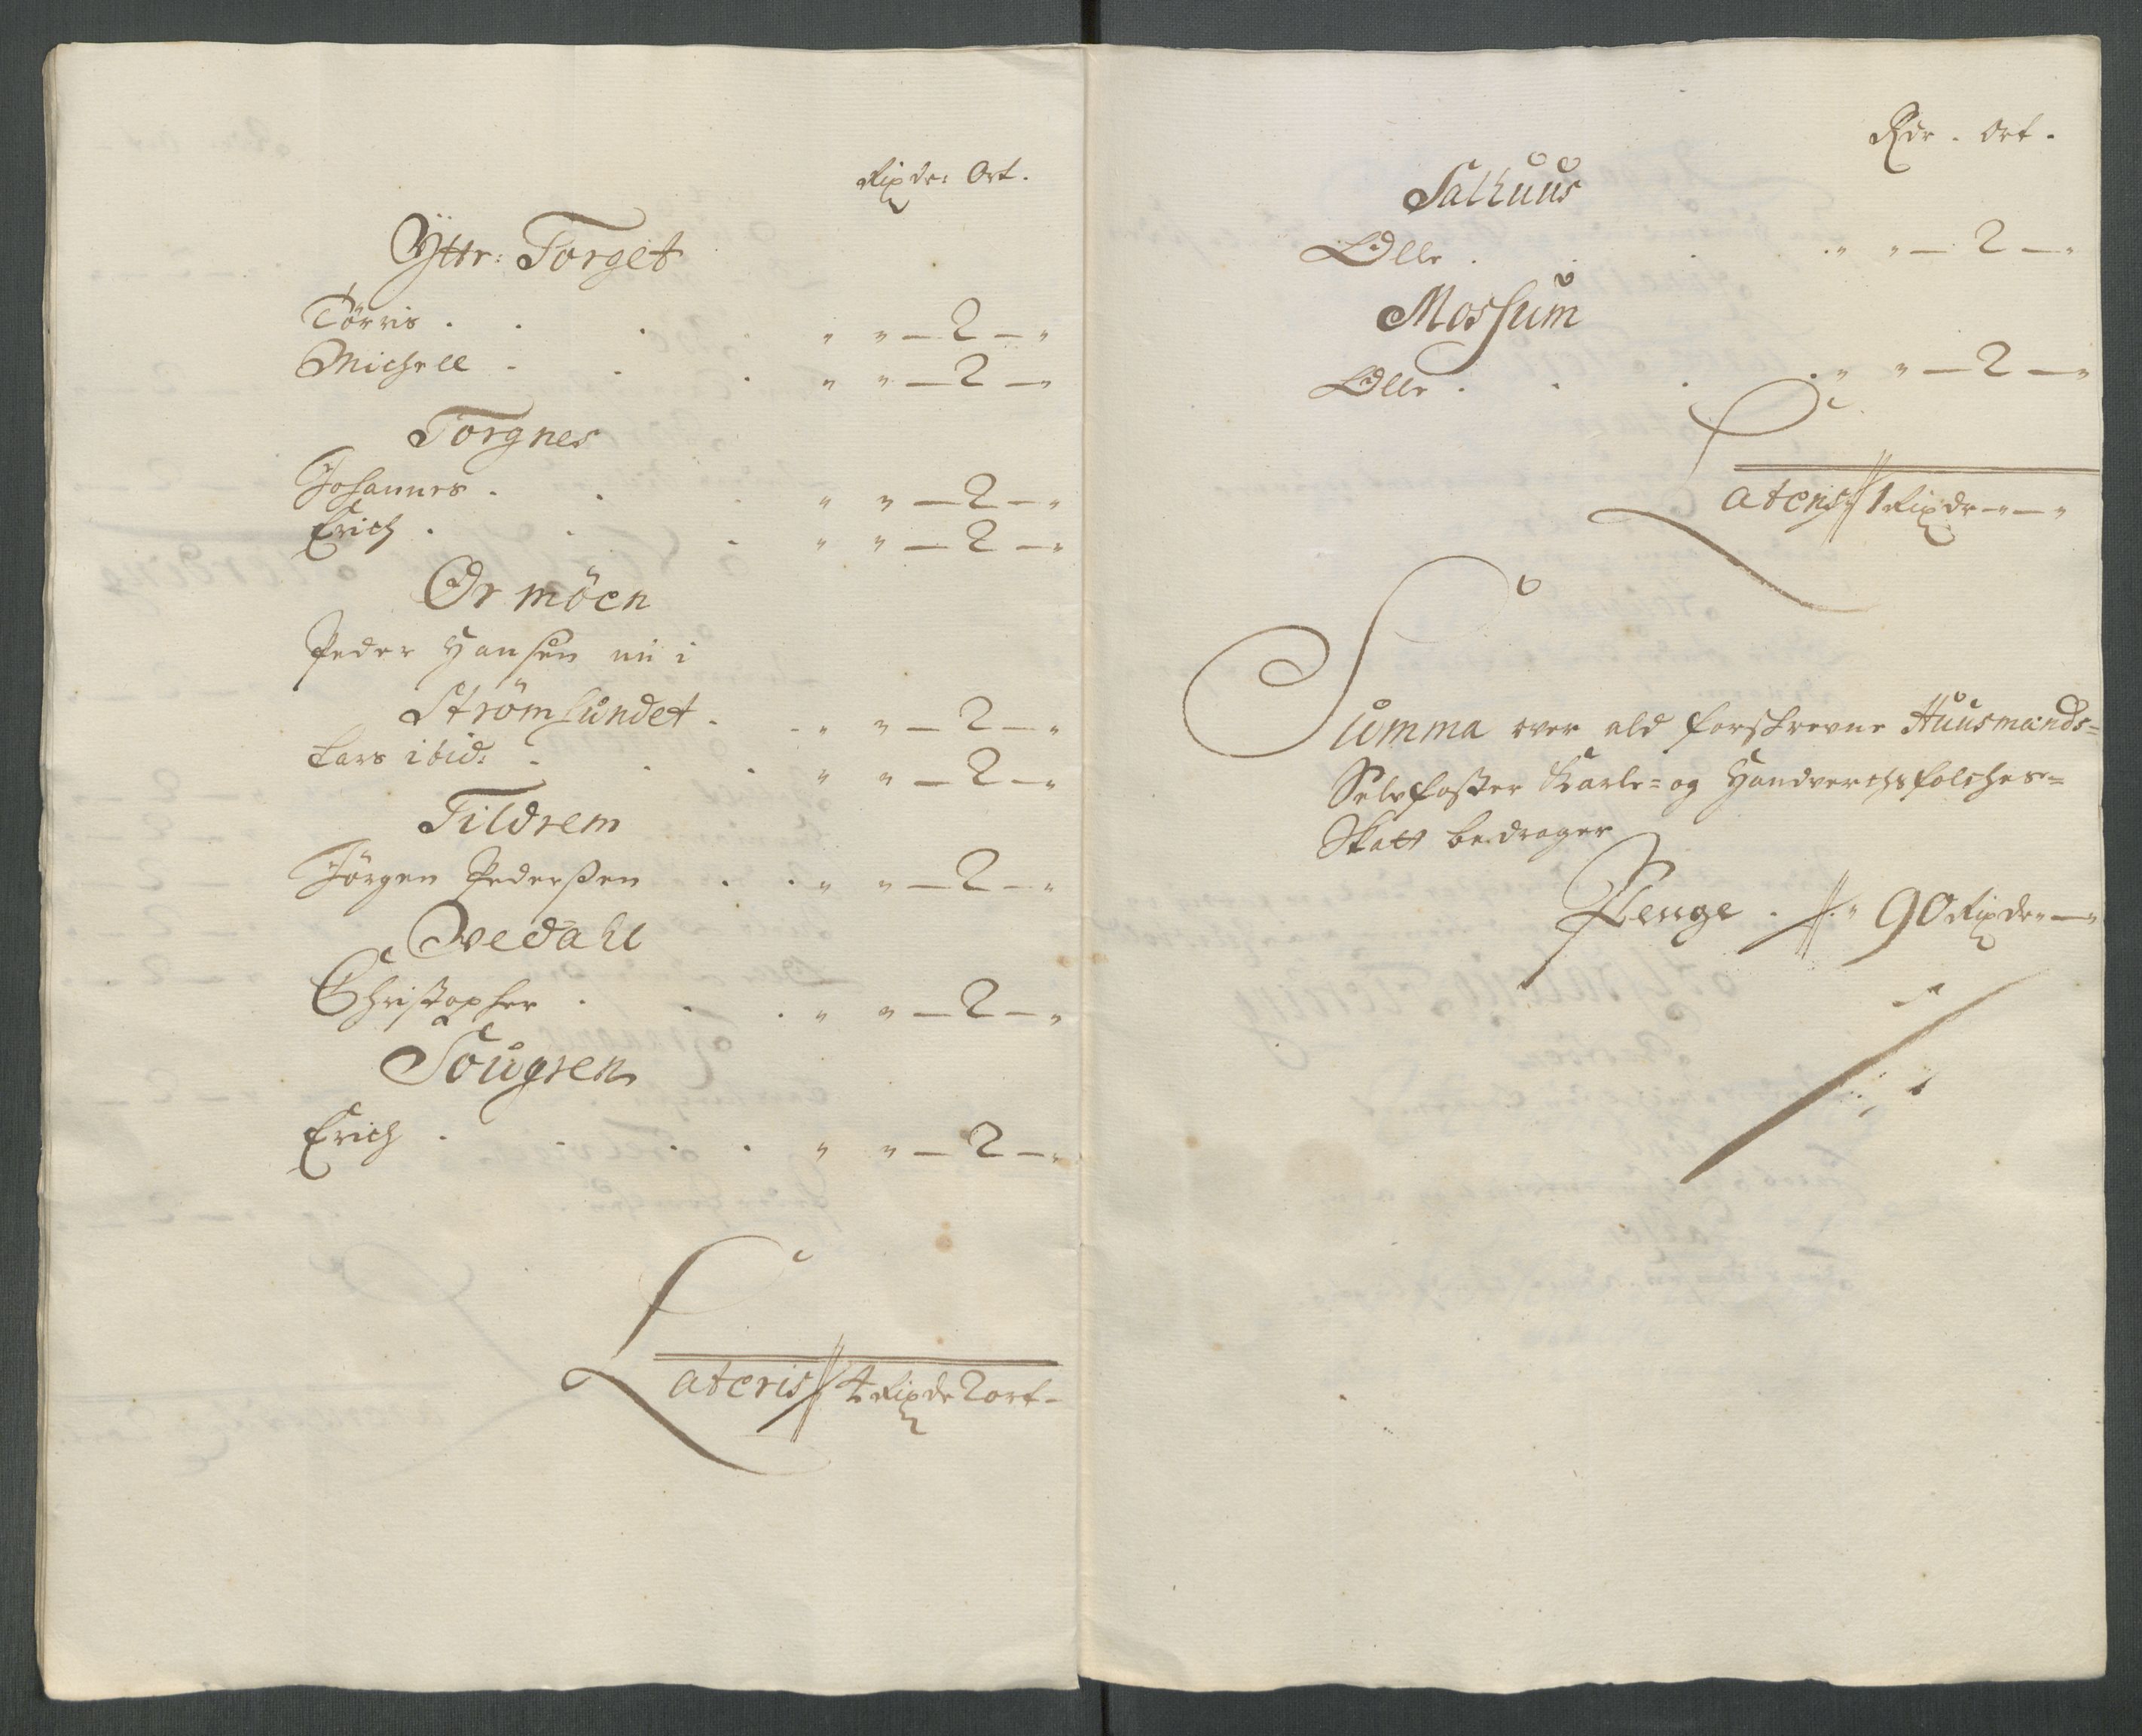 Rixdr: Ort.
Yttr: Torget
Törris . . . " " — 2 — "
Michell . . . " " — 2 — "
Torgnes
Johannes . . . " " — 2 — "
Erich . . . " " — 2 — "
Ormöen
Peder Hansen nu i
Strömsundet . . " " — 2 — "
Lars ibid: . . . " " — 2 — "
Tildrem
Jörgen Pederssen . . " " — 2 — "
Qvedahl
Christopher . . . " " — 2 — "
Sougren
Erich . . . . " " — 2 — "
Lateris 4 Rixdr 2 ort -
Rdr . Ort .
Salhuus
Olle . . . . " " — 2 — "
Mossum
Olle . . . . " " — 2 — "
Lateris 1 Rixdr " — "
Summa over ald forskrevne Huusmands=
Selvfoster Karle= og Handverchsfolches=
Skatt bedrager
Penge . " 90 Rixdr " — "